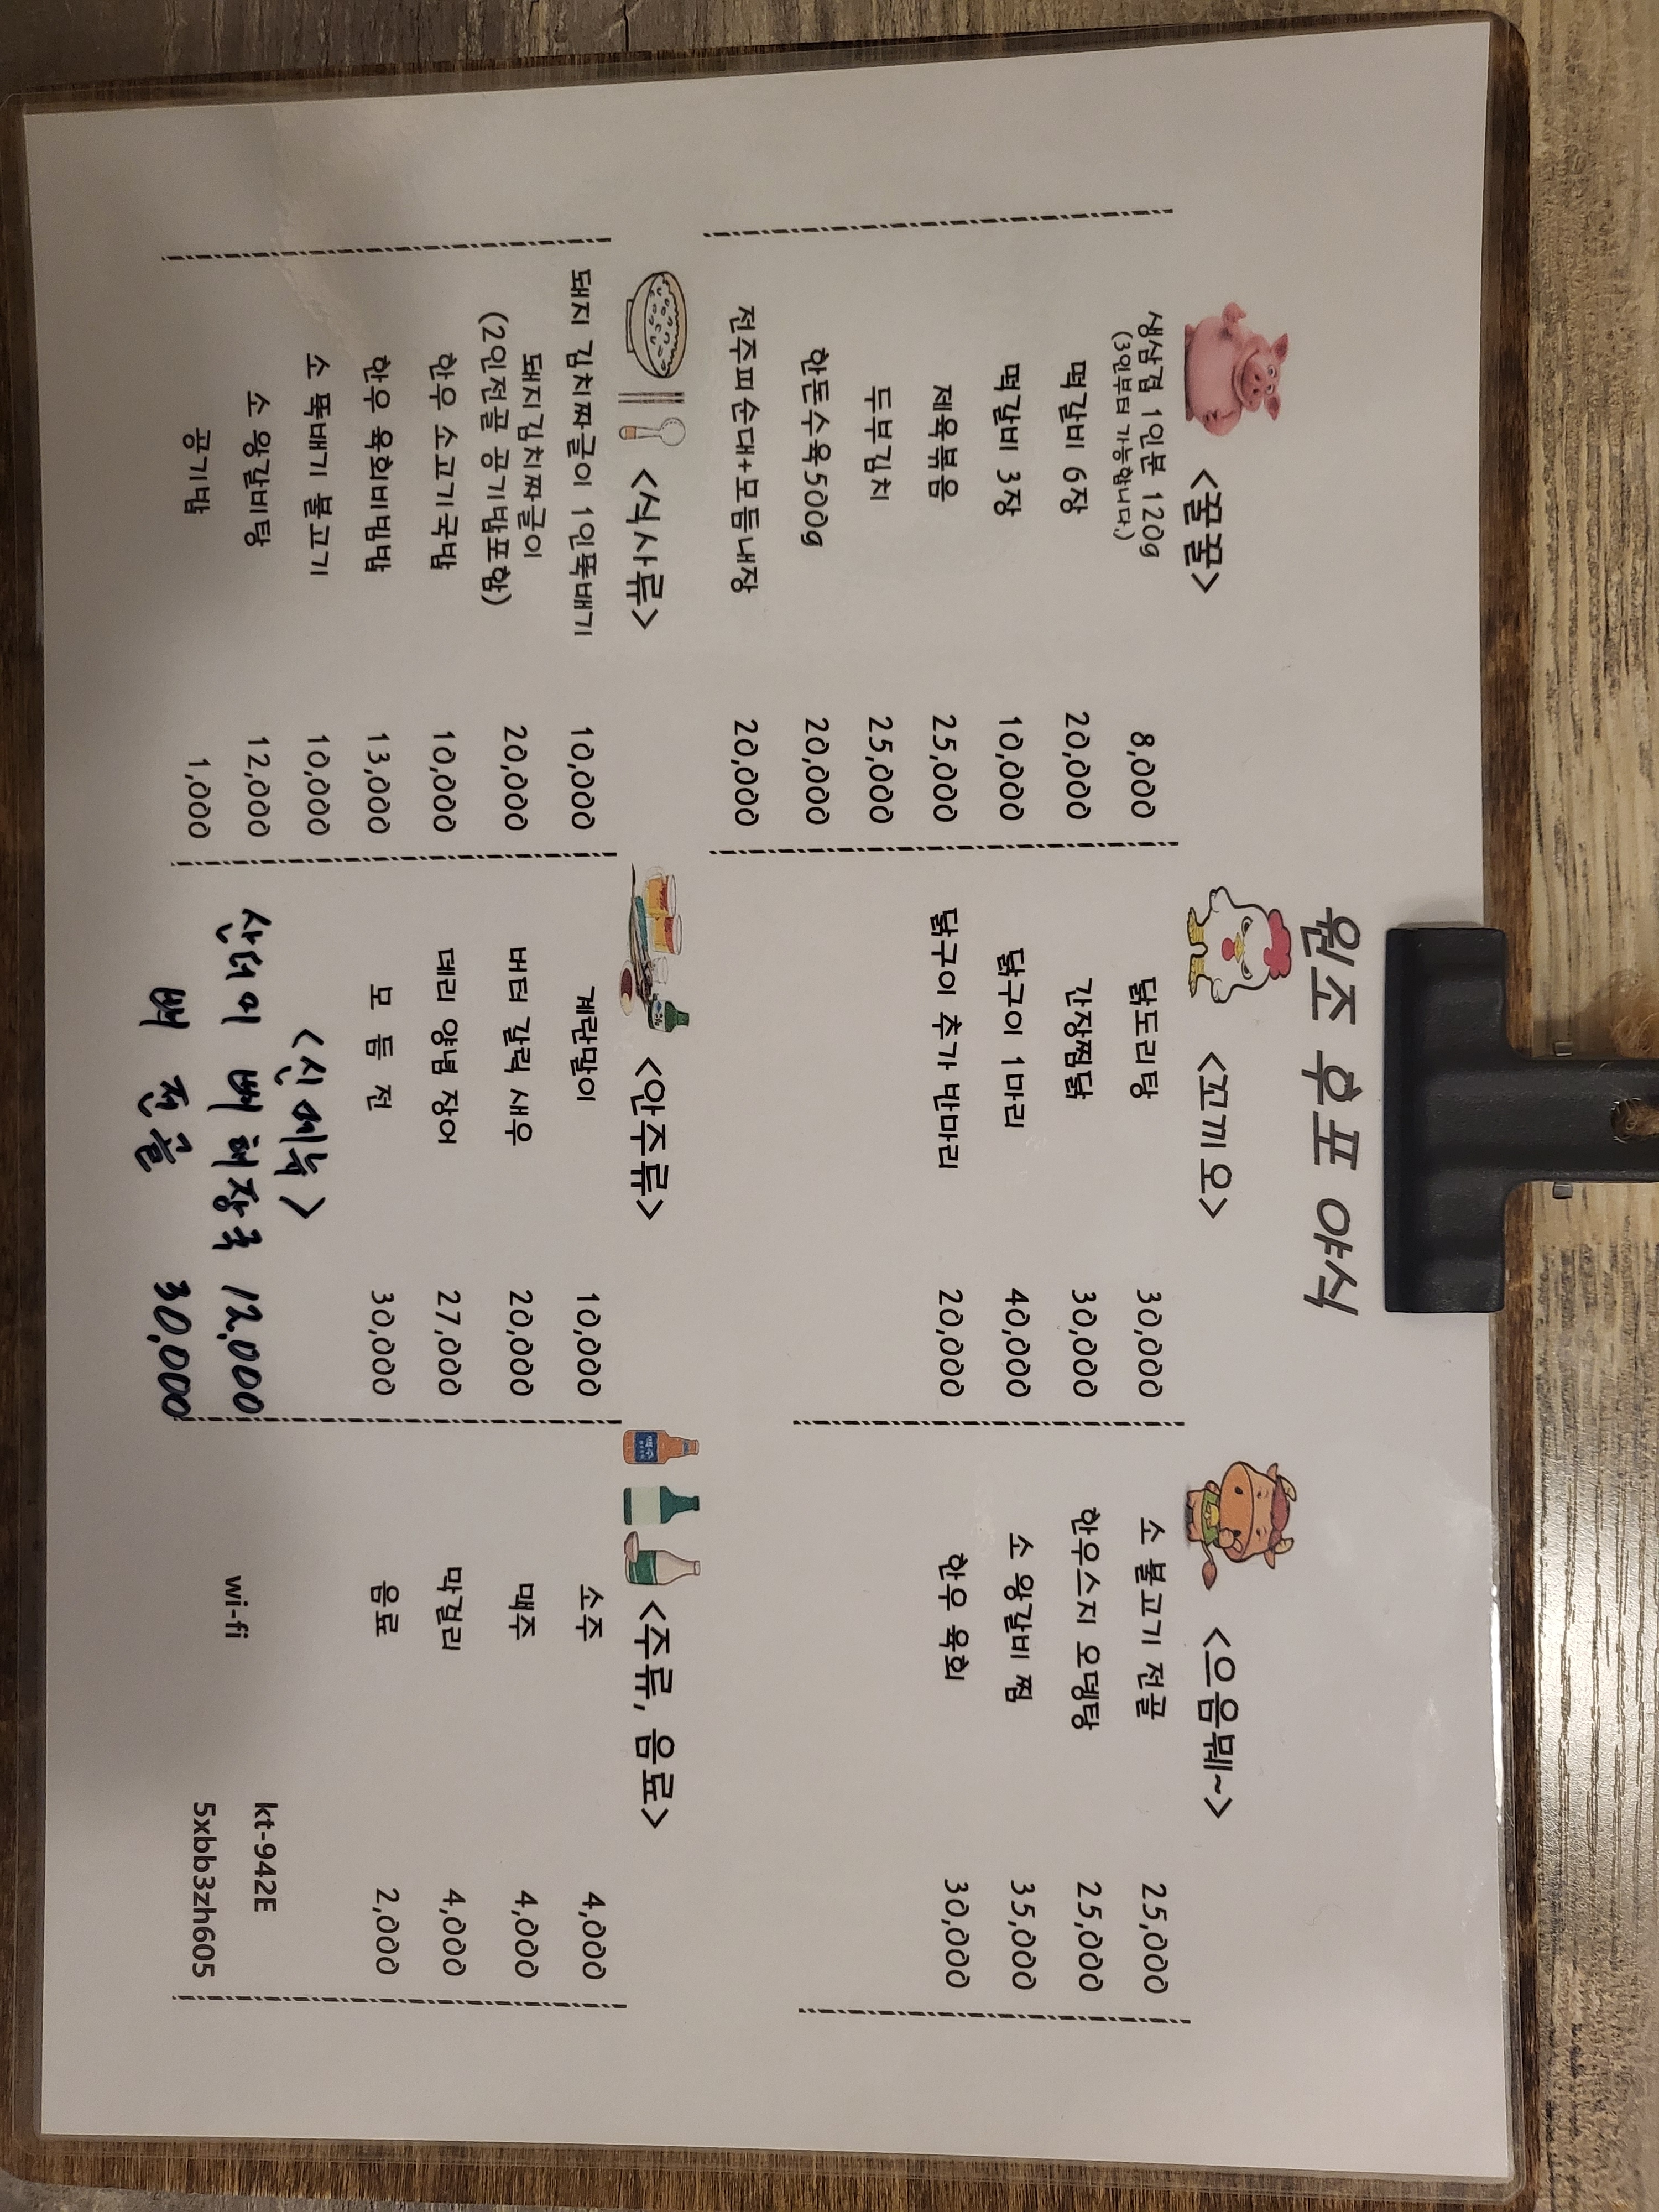 원조 후포 야식
<꿀꿀>
생삼겹 1인분 120g 8,000
(3인부터 가능합니다.)
떡갈비 6장 20,000
떡갈비 3장 10,000
제육볶음 25,000
두부김치 25,000
한돈수육500g 20,000
전주피순대+모듬내장 20,000
<꼬끼오>
닭도리탕 30,000
간장찜닭 30,000
닭구이 1마리 40,000
닭구이 추가 반마리 20,000
<으음뭬~>
소 불고기 전골 25,000
한우스지 오뎅탕 25,000
소 왕갈비 찜 35,000
한우 육회 30,000
<식사류>
돼지 김치짜글이 1인뚝배기 10,000
돼지김치짜글이 20,000
(2인전골 공기밥포함)
한우 소고기국밥 10,000
한우 육회비빔밥 13,000
소 뚝배기 불고기 10,000
소 왕갈비탕 12,000
공기밥 1,000
<안주류>
계란말이 10,000
버터 갈릭 새우 20,000
데리 양념 장어 27,000
모 듬 전 30,000
<신메뉴>
산더미 뼈 해장국 12,000
뼈 전골 30,000
<주류, 음료>
소주 4,000
맥주 4,000
막걸리 4,000
음료 2,000
wi-fi
kt-942E
5xbb3zh605
맥주